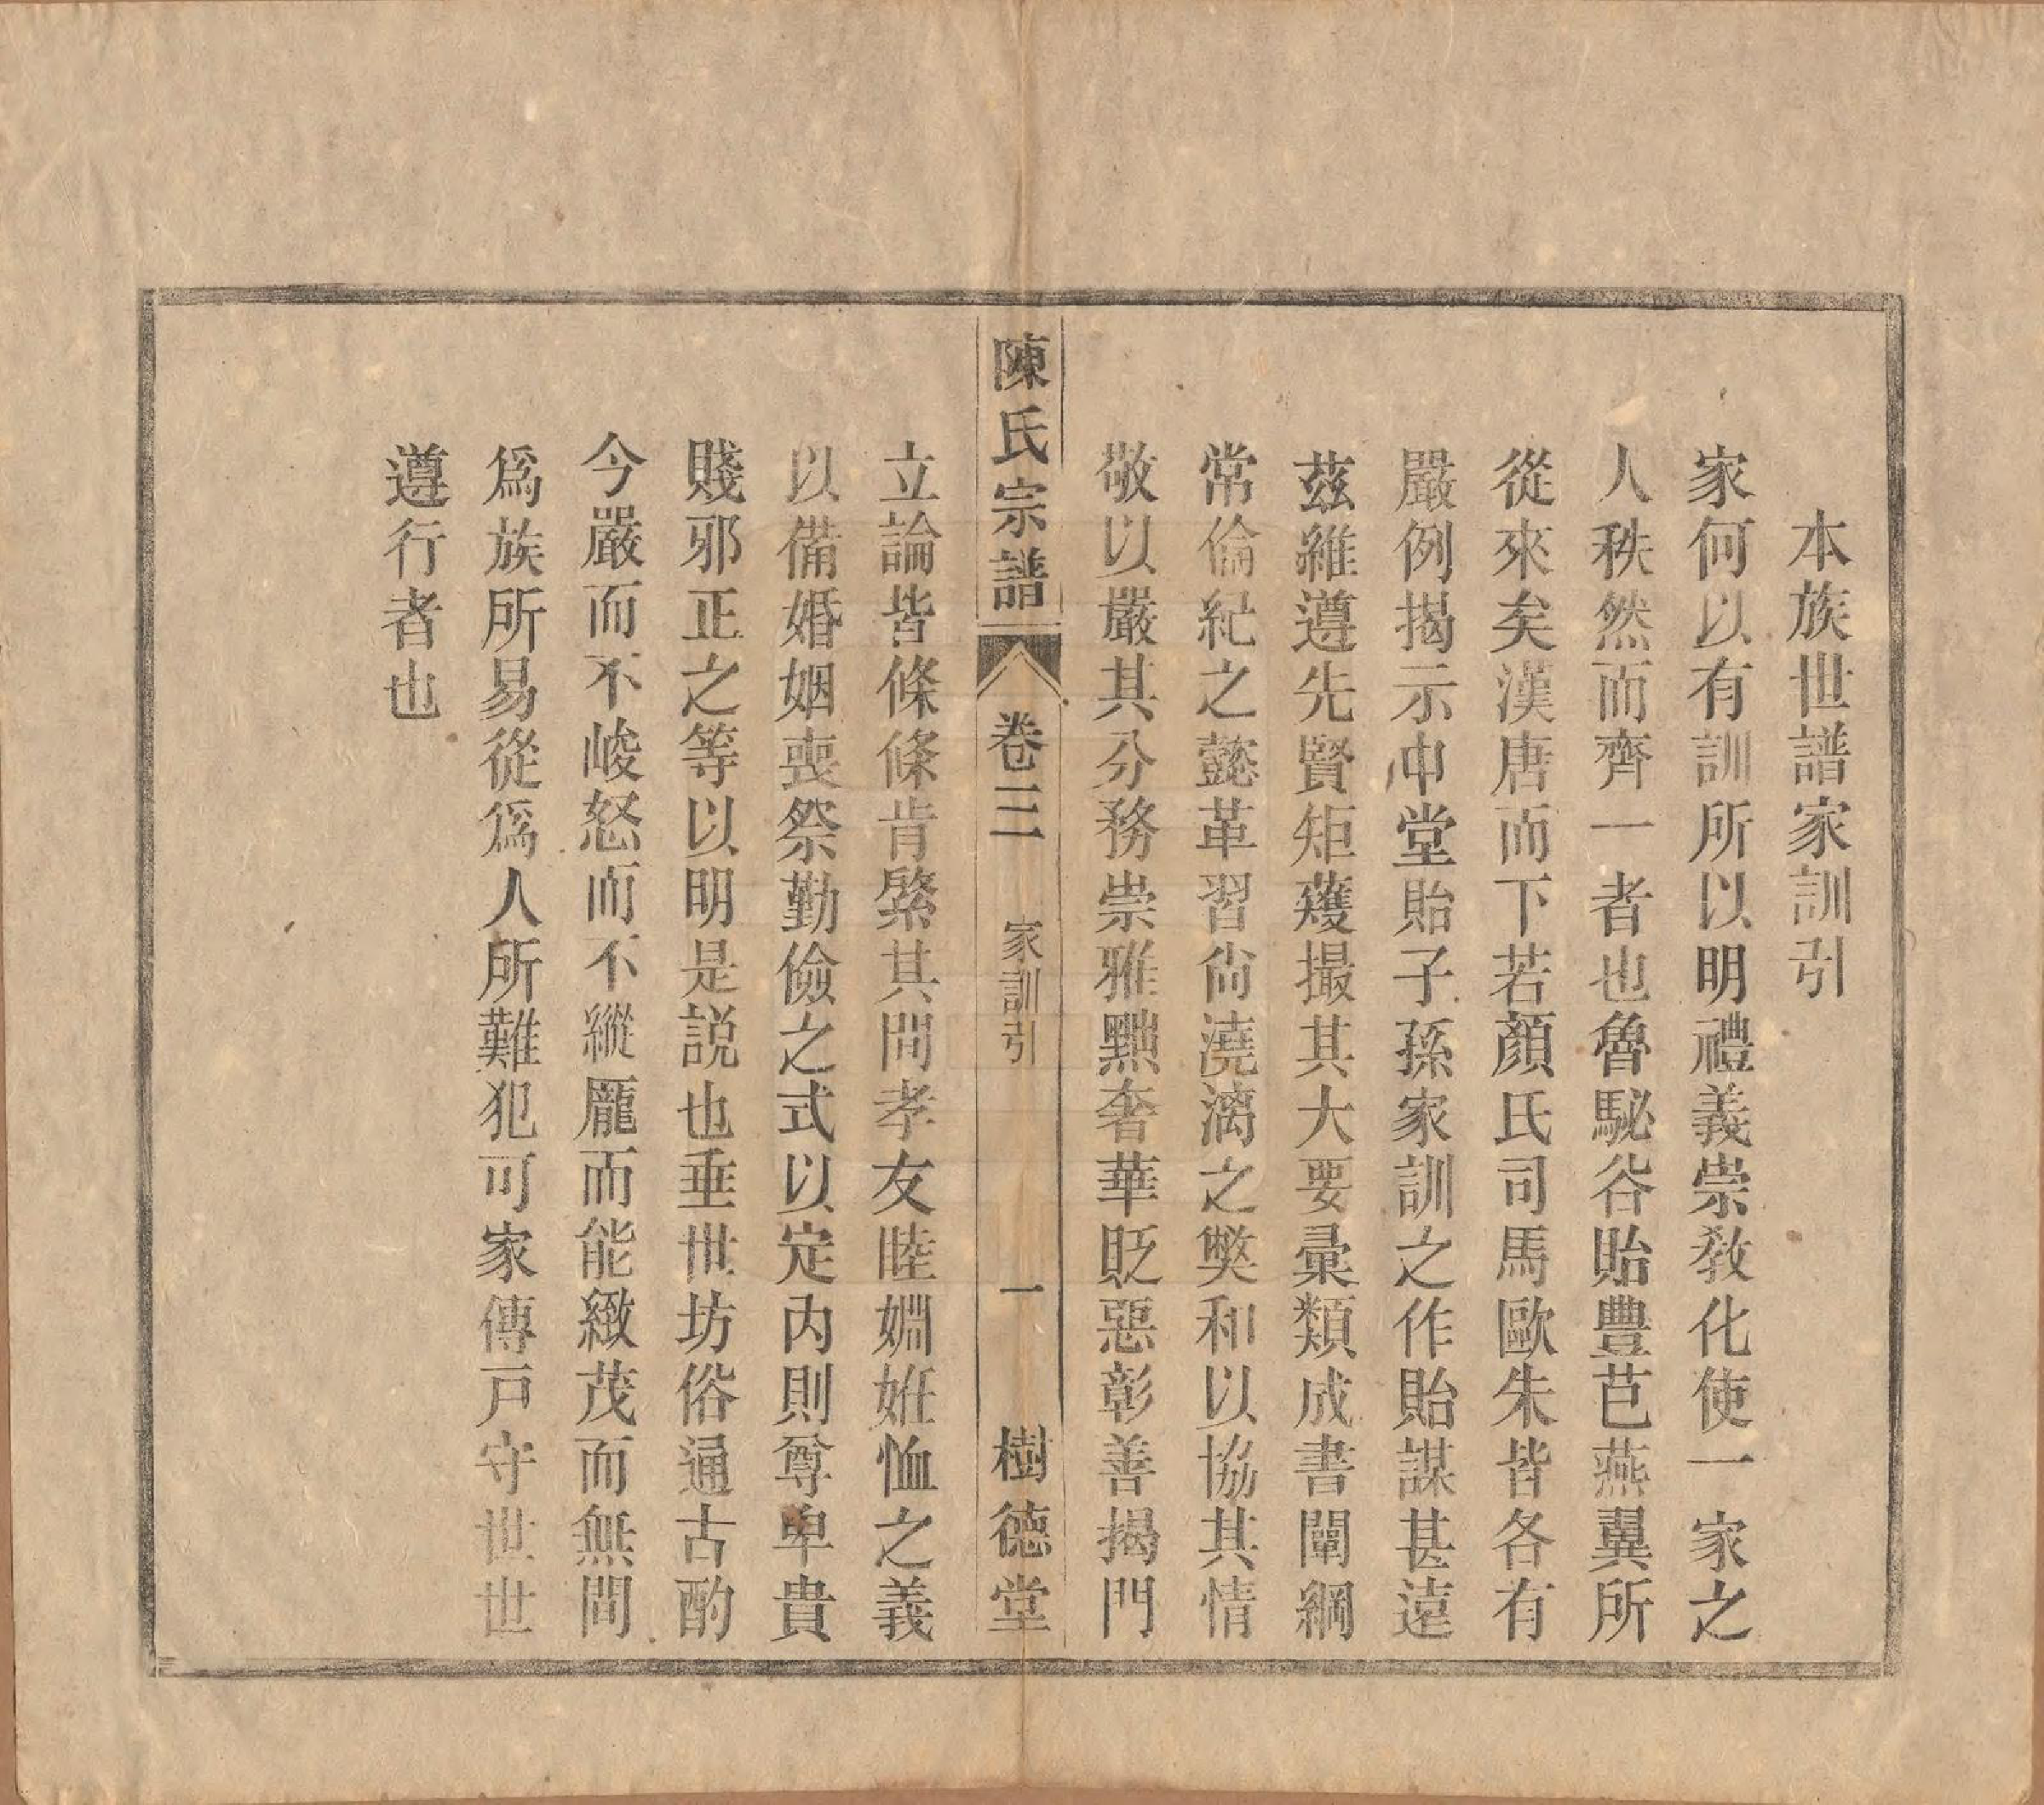 本族世譜家訓引
家何以有訓所以明禮義崇敎化使一家之
人秩然而齊一者也魯駜谷貽豐芑燕翼所
從來矣漢唐而下若顏氏司馬歐朱皆各有
嚴例揭示中堂貽子孫家訓之作貽謀甚遠
茲維遵先賢矩蒦撮其大要彙類成書闡綱
常倫紀之懿革習尙澆漓之獘和以協其情
敬以嚴其分務崇雅黜奢華貶惡彰善揭門
陳氏宗譜
卷三
家訓引
一
樹德堂
立論皆條條肯綮其間孝友睦婣姙恤之義
以備婚姻喪祭勤儉之式以定內則尊卑貴
賤邪正之等以明是説也垂世坊俗通古酌
今嚴而不峻怒而不縱龐而能緻茂而無間
爲族所易從爲人所難犯可家傳戸守世世
遵行者也